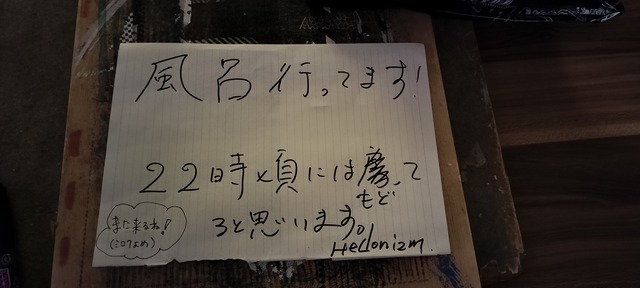 風呂行ってます!
22時頃には慶って
もど
ろと思います。
Hedonizm.
また来るね!
(ミロクよめ)